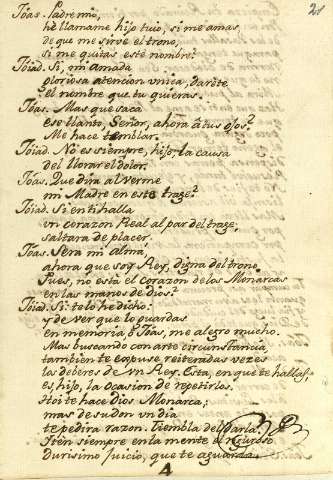 28
Jōas. Padre mio,
he llamame hijo tuio, si me amas,
de que me sirve el trono,
si me quitas este nombre?
Jōiad. Si, mi amada
gloriosa atencion unica, darète
el nombre que tu quieras.
Jōas. Mas què saca
ese llanto, Señor, ahora à tus ojos?
Me hace temblar.
Jōiad. No es siempre, hijo, la causa
del llorar el dolor.
Jōas. Que dira al verme
mi Madre en este trage?
Jōiad. Si en ti halla
vn corazon Real al par del trage,
saltara de placer.
Jōas. Serà mi alma,
ahora que soy Rey, digna del trono.
Pues, no està el corazon de los Monarcas
en las manos de dios?
Jōiad. Si: telo he dicho:
y de ver que lo guardas
en memoria ò Jōas, me alegro mucho.
Mas buscando con arte circunstancia
tambien te expuse reiteradas vezes
las deberes de vn Rey. Esta, en que te hallas
es, hijo, la ocasion de repetirlos.
Hoi te hace Dios Monarca;
mas de su don vn dia
te pedira razon. Tiembla del darla.
Tèn siempre en la mente el riguroso
durisimo juicio, que te aguarda.
4